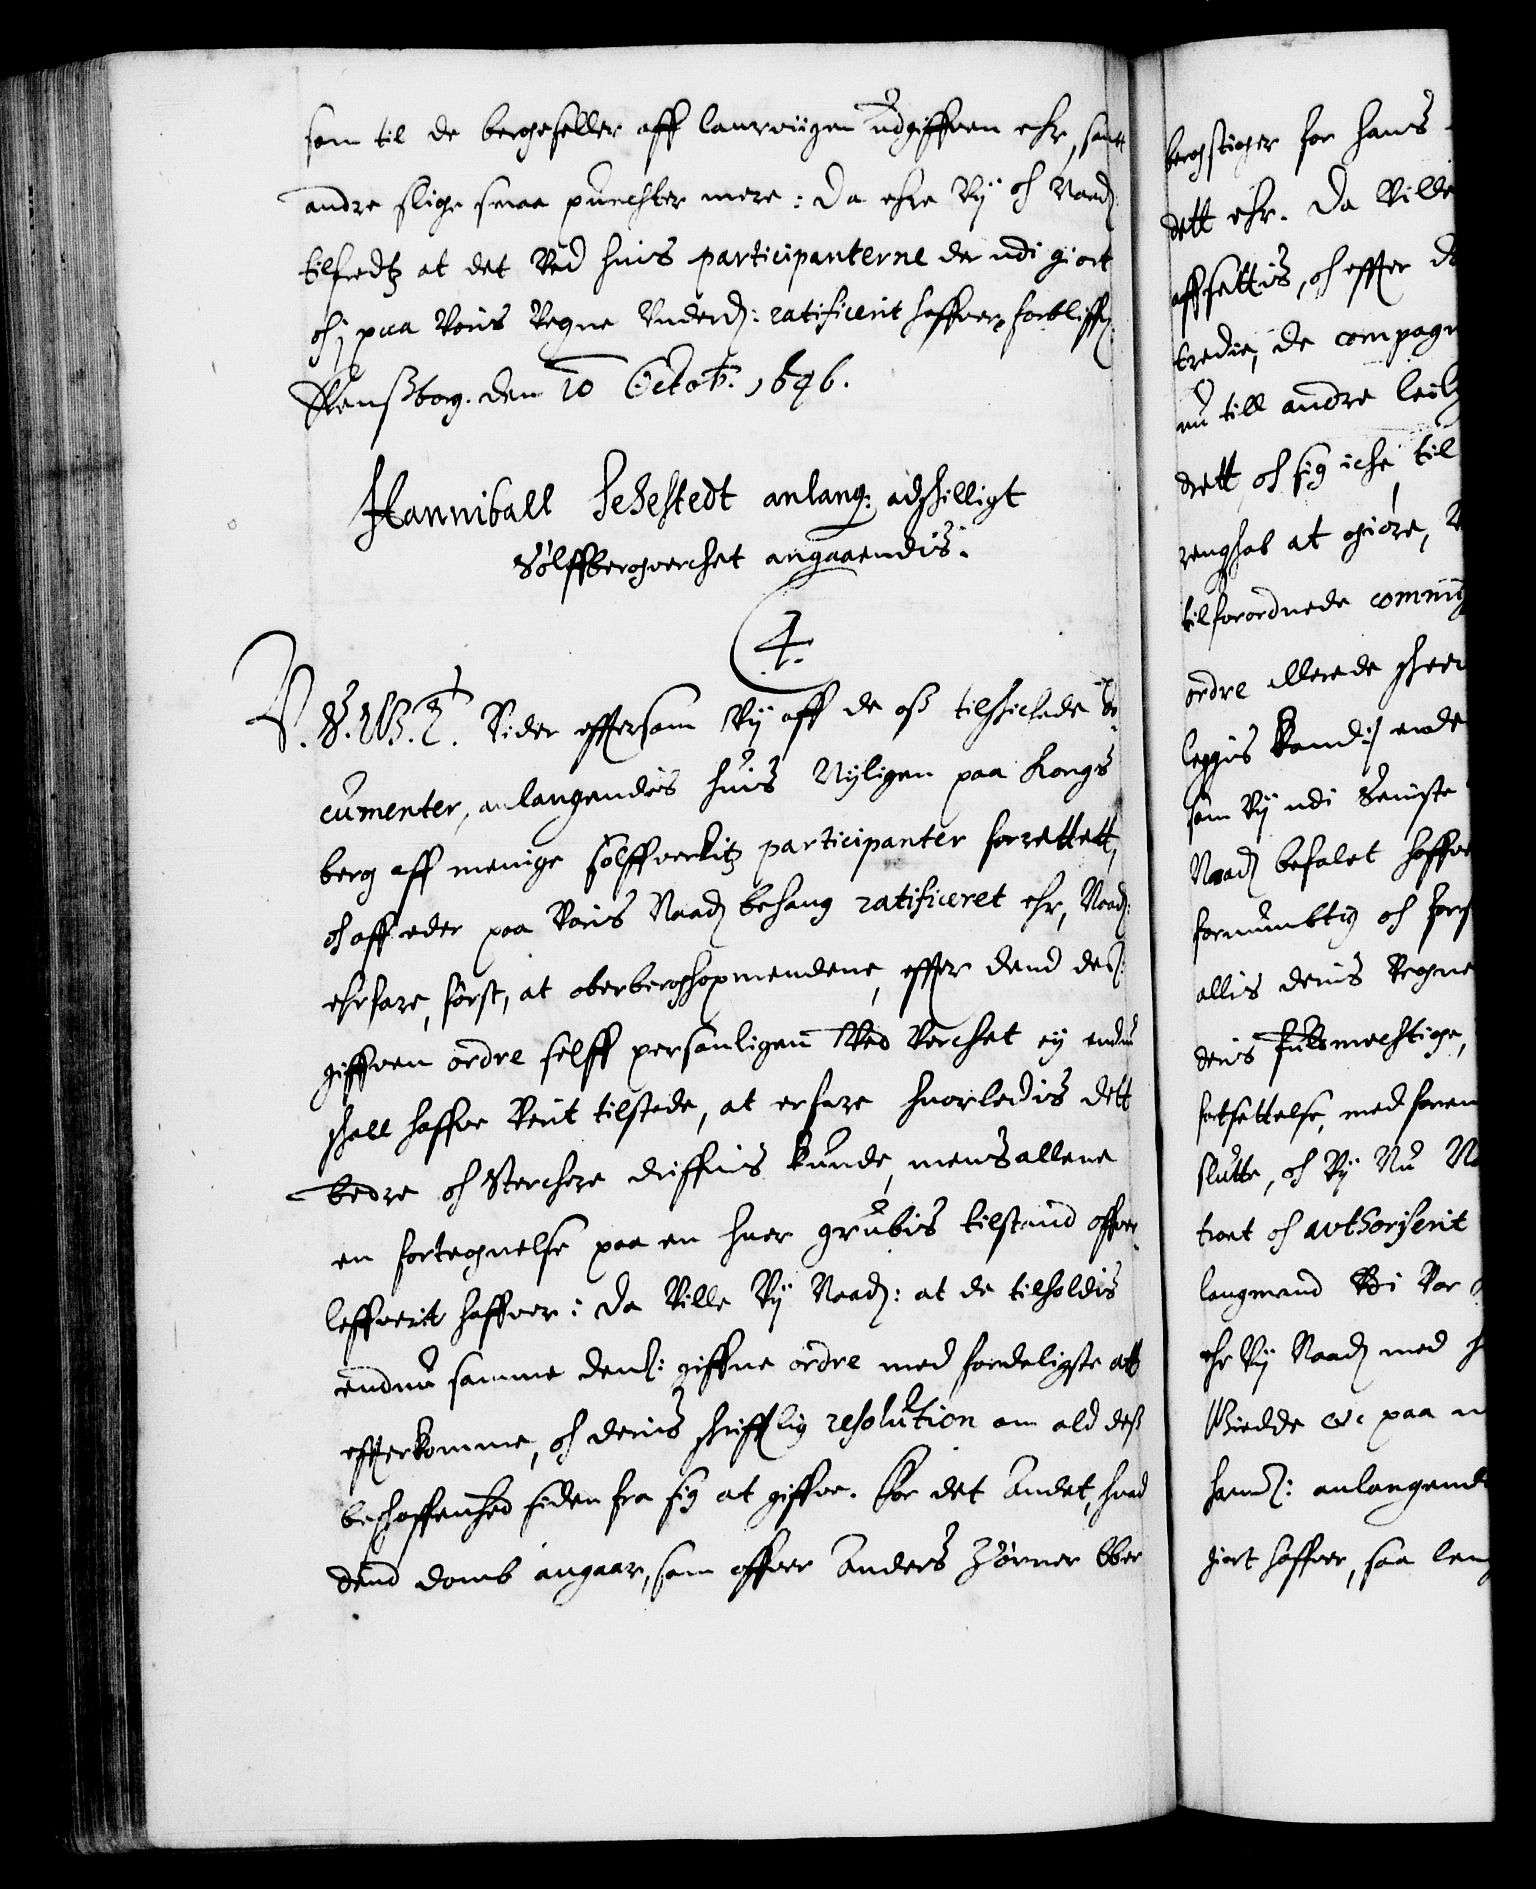 som til de bergeseller aff laurviigen udgiffven ehr, samt
andre slige smaa punchter mere: Da ehre Vij oc Naad:
tilfredtz at det Ved huis participanterne der udi giort
oc i paa Voris Vegne Underd: ratificerit haffver, forbliff:
Flensborg. den 10 Octob: 1646.
Hanniball Sehestedt anlang: adskilligt
Sølffbergverchet angaaendis.
4.
V. S. G. T. Vider eftersom Vij aff de oss tilskichede do-
cumenter, anlangendis huis Nyligen paa Kongs
berg aff menige sølffverkitz participanter forrettett,
oc aff eder paa Voris Naad behaug ratificeret ehr, Naad:
ehrfare, først, at oberberghopmendene, effter dend deris:
giffven ordre selff personligen Ved Verchet ej endnu
skall haffve Verit tilstede, at erfare huorledis dett
bedre oc sterchere driffvis kunde, mens allene
en fortegnelse paa en huer grubis tilstand offver
leffverit haffver: Da Ville Vij Naad: at de tilholdis
endnu samme dem: giffne ordre med forderligste att
efterkomme, oc deris skrifftlig resolution om ald dess
beschaffenhed siden fra sig at giffve. For det Andet, huad
dend domb angaar, som offver Anders Zørner Ober
bergstiger for hans
dett ehr. Da Ville
affsettis, oc effter
tredie, de compagn
nu till andre
drett oc sig iche til
rengskab at giøre,
tilforordnede commi
ordre allerede skeer
leggis
som Vij udi Seniste
Naad befalet haffve
fornumbtig oc fors
allis deris Vegne
deris fuldmechtige,
fortsettelse, med foren
slutte, oc Vij Nu
troet oc authoriserit
langmand
ehr Vij Naad med
Giedde etc paa
ham: anlangend
giort haffver, saa leng